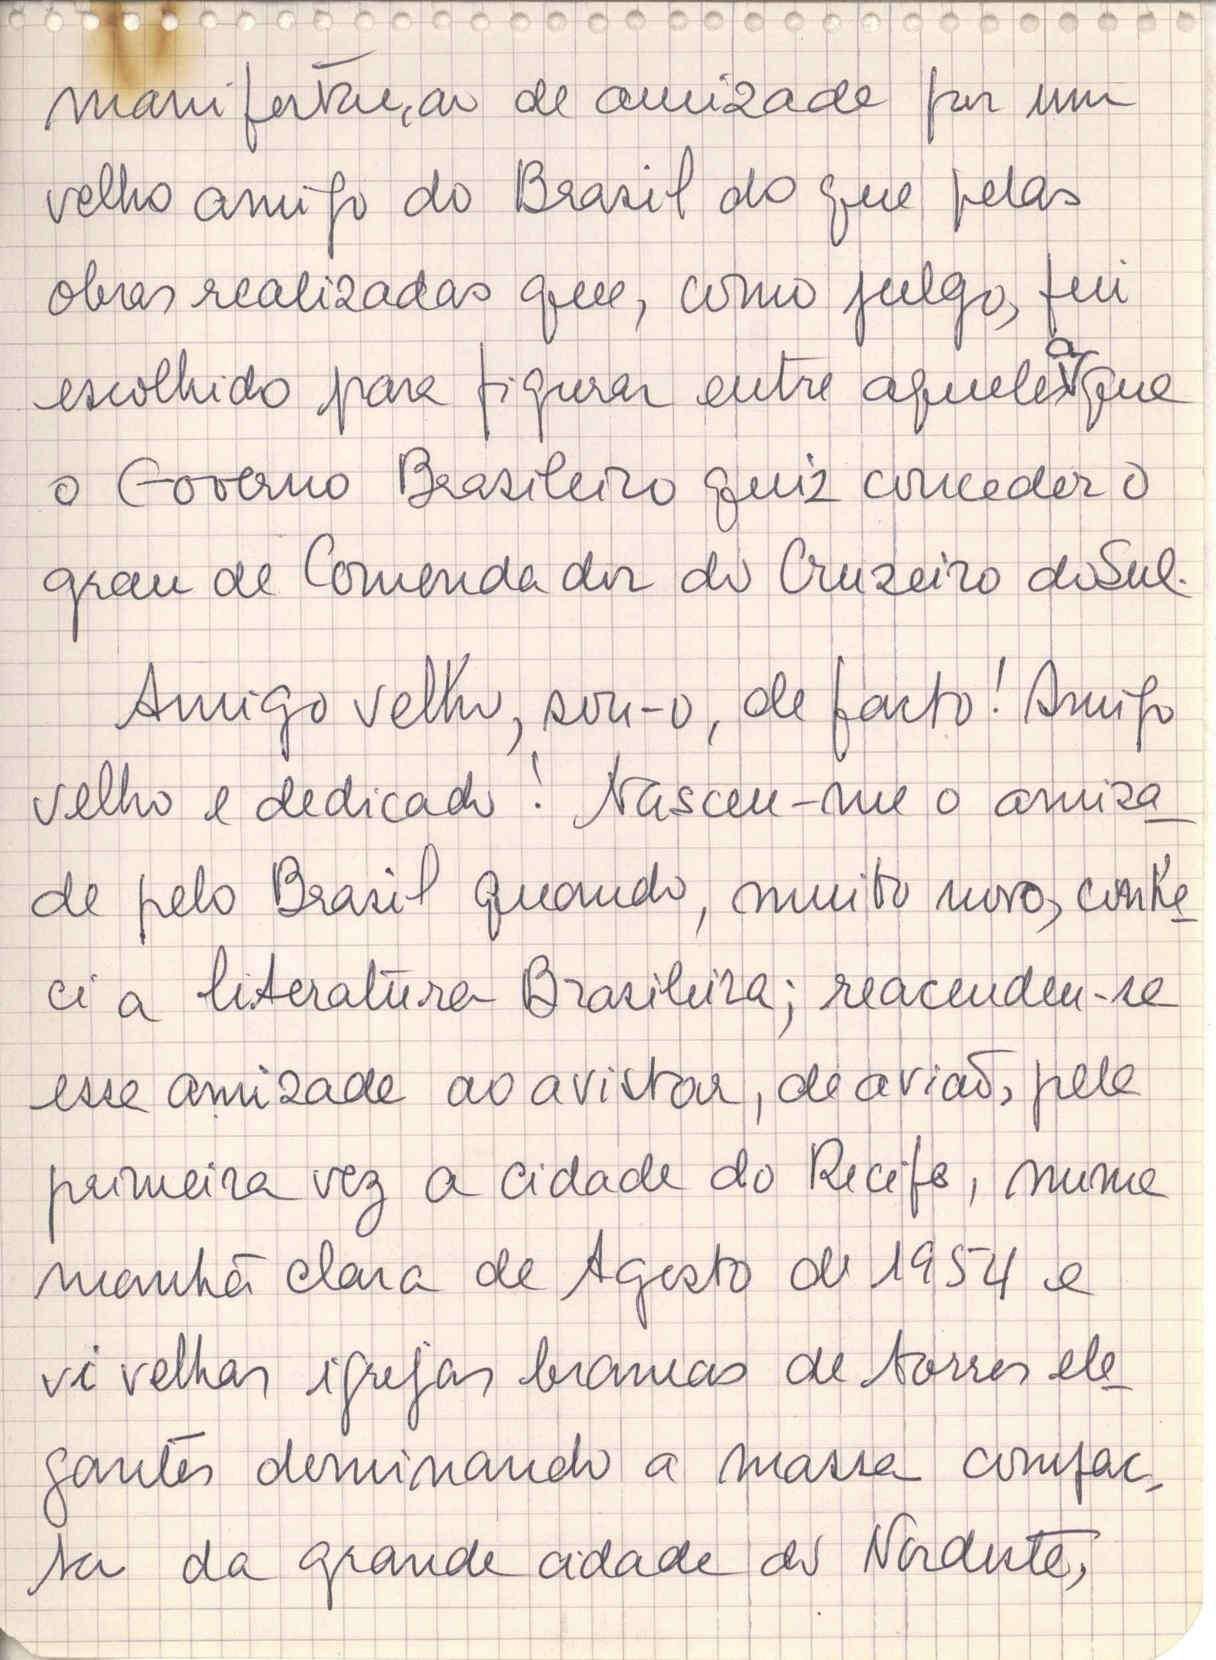 manifestação de amizade por um
velho amigo do Brasil do que pelas
obras realizadas que, como julgo, fui
escolhido para figurar entre aqueles a que
o Governo Brasileiro quiz conceder o
grau de Comendador do Cruzeiro do Sul.
Amigo velho, sou-o, de facto! Amigo
velho e dedicado! Nasceu-me a amiza
de pelo Brasil quando, muito novo, conhe
ci a literatura Brasileira; reacendeu-se
essa amizade ao avistar, de avião, pela
primeira vez a cidade do Recife, numa
manhã clara de Agosto de 1954 e
vi velhas igrejas brancas de torres ele
gantes dominando a massa compac-
ta da grande cidade do Nordeste;